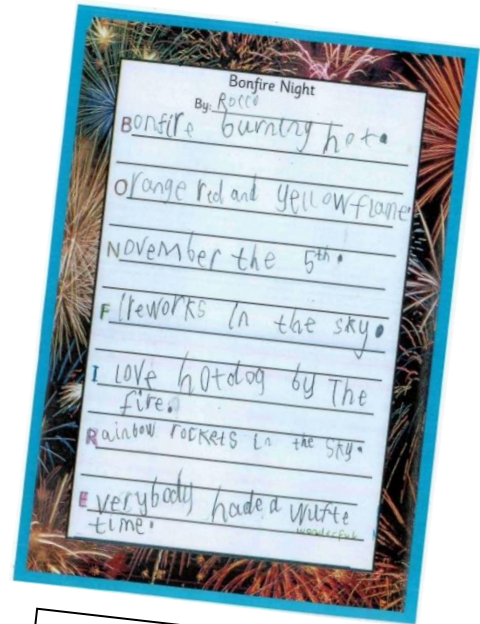 Bonfire Night
By: Rocco
Bonfire burning hot.
Orange red and yellow flame
November the 5th.
Fireworks in the sky.
I love hotdog by The
fire.
Rainbow rockets in the sky.
Everybody hade a wufte
time.
wonderful